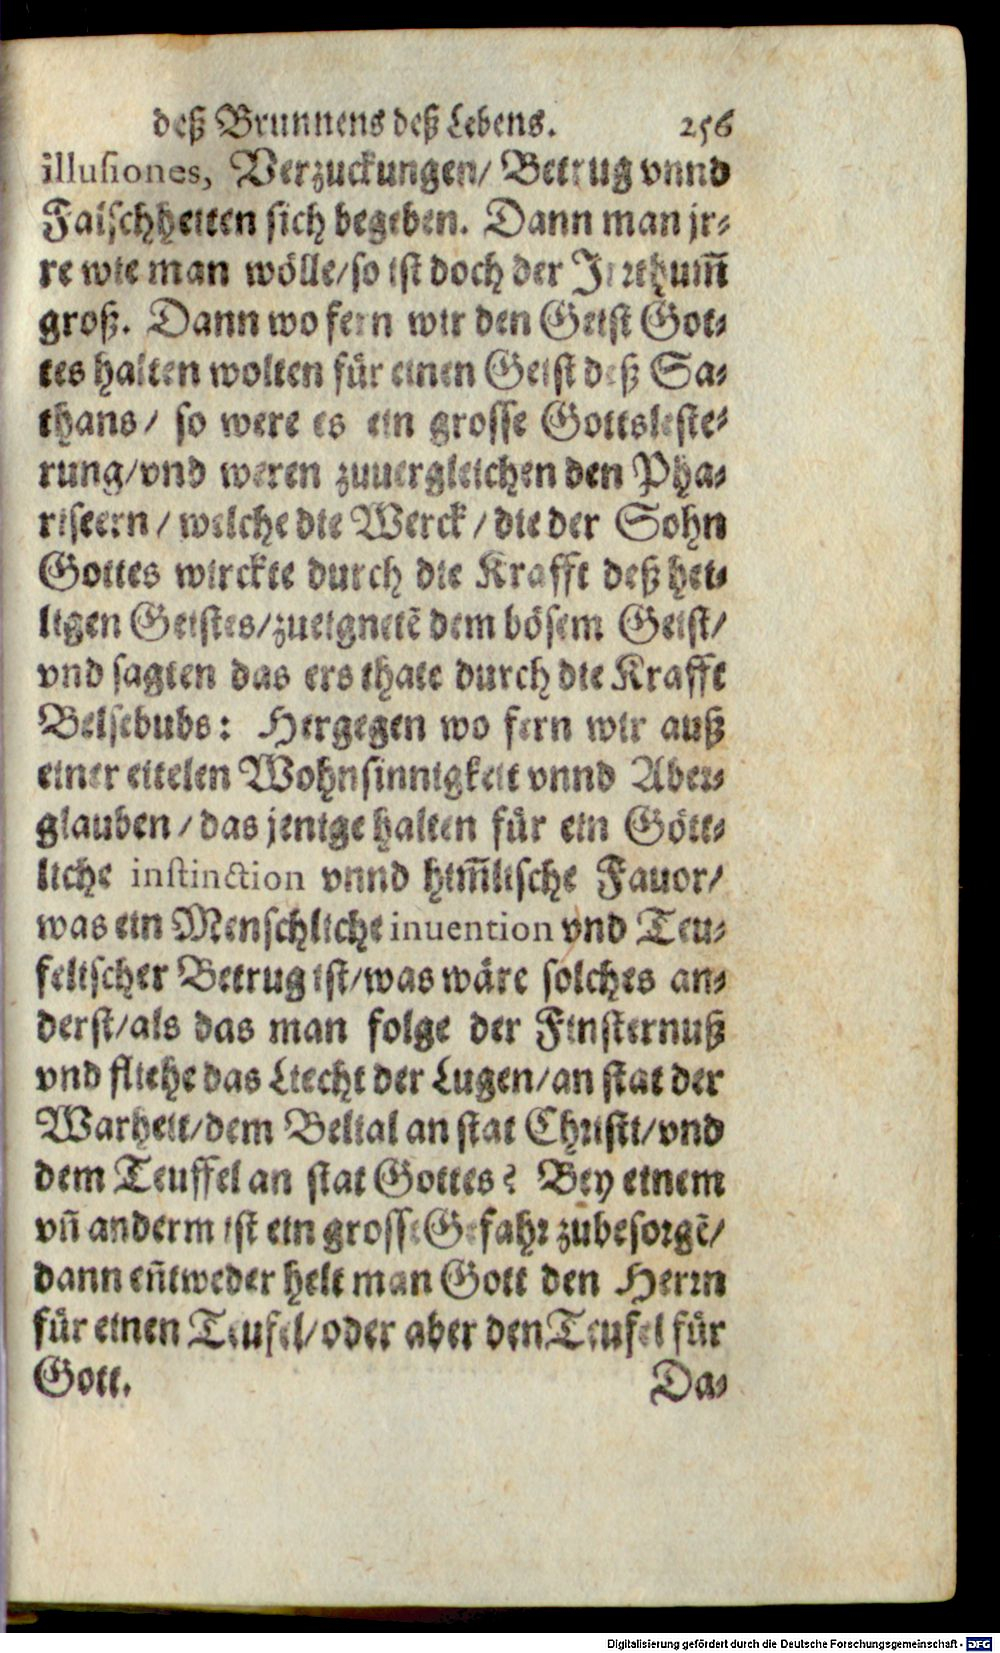 deß Brunnens deß Lebens. 256
illusiones, Verzuckungen/ Betrug vnnd
Falschheiten sich begeben. Dann man jr-
re wie man wölle/ so ist doch der Irrthum̃
groß. Dann wo fern wir den Geist Got-
tes halten wolten für einen Geist deß Sa-
thans/ so were es ein grosse Gottsleste-
rung/ vnd weren zuuergleichen den Pha-
riseern / welche die Werck / die der Sohn
Gottes wirckte durch die Krafft deß hei-
ligen Geistes/ zueignetẽ dem bösem Geist/
vnd sagten das ers thate durch die Krafft
Belsebubs: Hergegen wo fern wir auß
einer eitelen Wohnsinnigkeit vnnd Aber-
glauben / das jenige halten für ein Gött-
liche instinction vnnd him̃lische Fauor/
was ein Menschliche inuention vnd Teu-
felischer Betrug ist/ was wäre solches an-
derst/ als das man folge der Finsternuß
vnd fliehe das Liecht der Lugen/ an stat der
Warheit/ dem Belial an stat Christi/ vnd
dem Teuffel an stat Gottes? Bey einem
vñ anderm ist ein grosse Gefahr zubesorgẽ/
dann eñtweder helt man Gott den Herrn
für einen Teufel/ oder aber den Teufel für
Gott. Da-
Digitalisierung gefördert durch die Deutsche Forschungsgemeinschaft - DFG